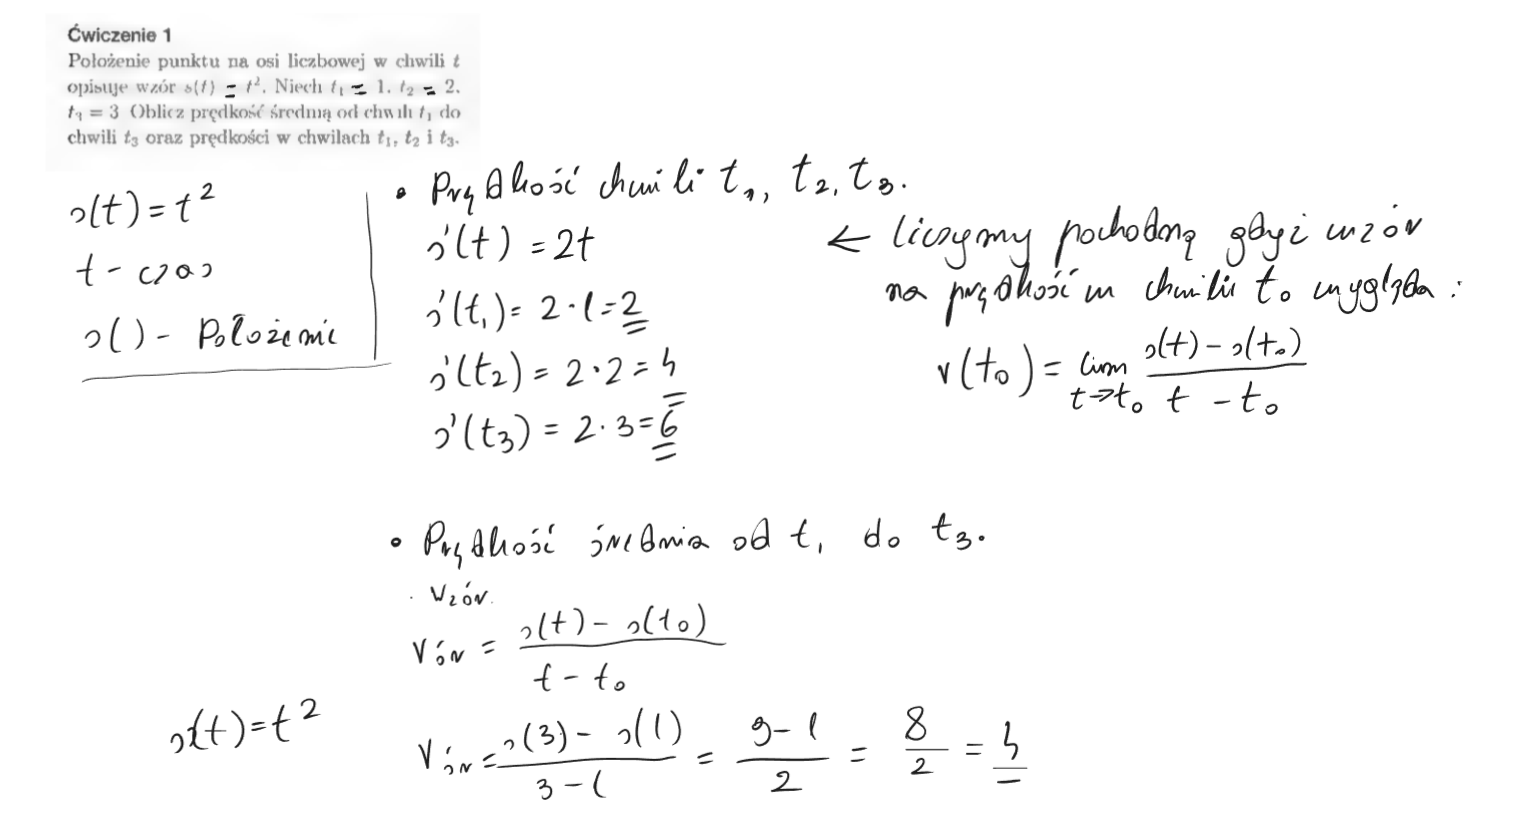 Ćwiczenie 1
Położenie punktu na osi liczbowej w chwili t
opisuje wzór s(t) = t². Niech t₁ = 1. t₂ = 2.
t₃ = 3 Oblicz prędkość średnią od chwili t₁ do
chwili t₃ oraz prędkości w chwilach t₁, t₂ i t₃.
s(t) = t²
t - czas
s( ) - Położenie
• Prędkość chwili t₁, t₂, t₃.
s'(t) = 2t
s'(t₁) = 2 · 1 = 2
s'(t₂) = 2 · 2 = 4
s'(t₃) = 2 · 3 = 6
← liczymy pochodną gdyż wzór
na prędkość w chwili t₀ wygląda :
v(t₀) = lim t→t₀ (s(t) - s(t₀)) / (t - t₀)
• Prędkość średnia od t₁ do t₃.
Wzór
Vśr = (s(t) - s(t₀)) / (t - t₀)
s(t) = t²
Vśr = (s(3) - s(1)) / (3 - 1) = (9 - 1) / 2 = 8 / 2 = 4